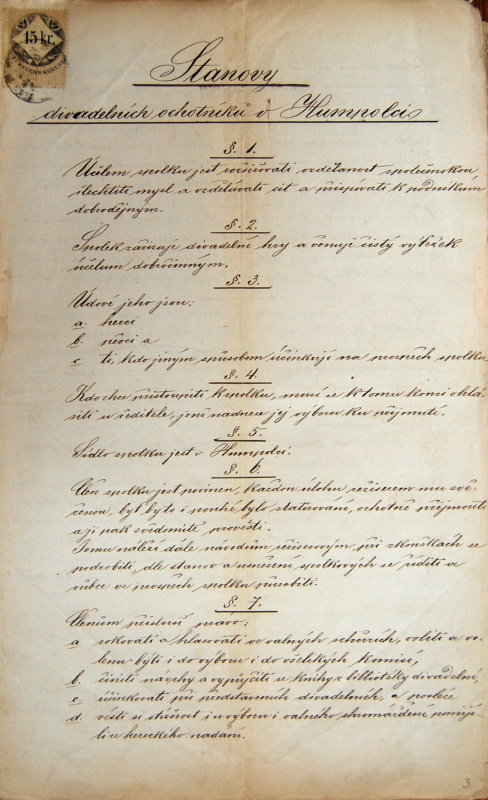 15 kr.
Stanovy
divadelních ochotníků v Humpolci
§. 1.
Účelem spolku jest rozšiřovati vzdělanost společenskou,
šlechtiti mysl a vzdělávati cit a přispívati k podnikům
dobročinným.
§. 2.
Spolek zařizuje divadelní hry a věnuje čistý výtěžek
účelům dobročinným.
§. 3.
Údové jeho jsou:
a. herci
b. pěvci a
c ti, kdo jiným způsobem účinkují na prospěch spolku.
§. 4.
Kdo chce přistoupiti k spolku, musí se k tomu konci ohlá-
siti u ředitele, jenž nadnese jej výboru ku přijmutí.
§. 5.
Sídlo spolku jest v Humpolci.
§. 6.
Člen spolku jest povinen, každou úlohu režiserem mu svě-
řenou, byť byto i pouhé bylo statování, ochotně přijmouti
a ji pak svědomitě provésti.
Jemu náleží dále návodům režiserovým při zkouškách se
podrobiti, dle stanov a usnešení spolkových se říditi a
vůbec ve prospěch spolku působiti.
§. 7.
Členům přísluší právo:
a rokovati a hlasovati ve valných schůzích, voliti a vo-
lenu býti i do výboru i do všelikých komisí,
b. činiti návrhy a vypůjčiti si knihy z bibliotéky divadelní,
c. účinkovati při představeních divadelních, a posléze
d. vésti si stížnost i u výboru i valného shromáždění
li u hereckého nadání.
3